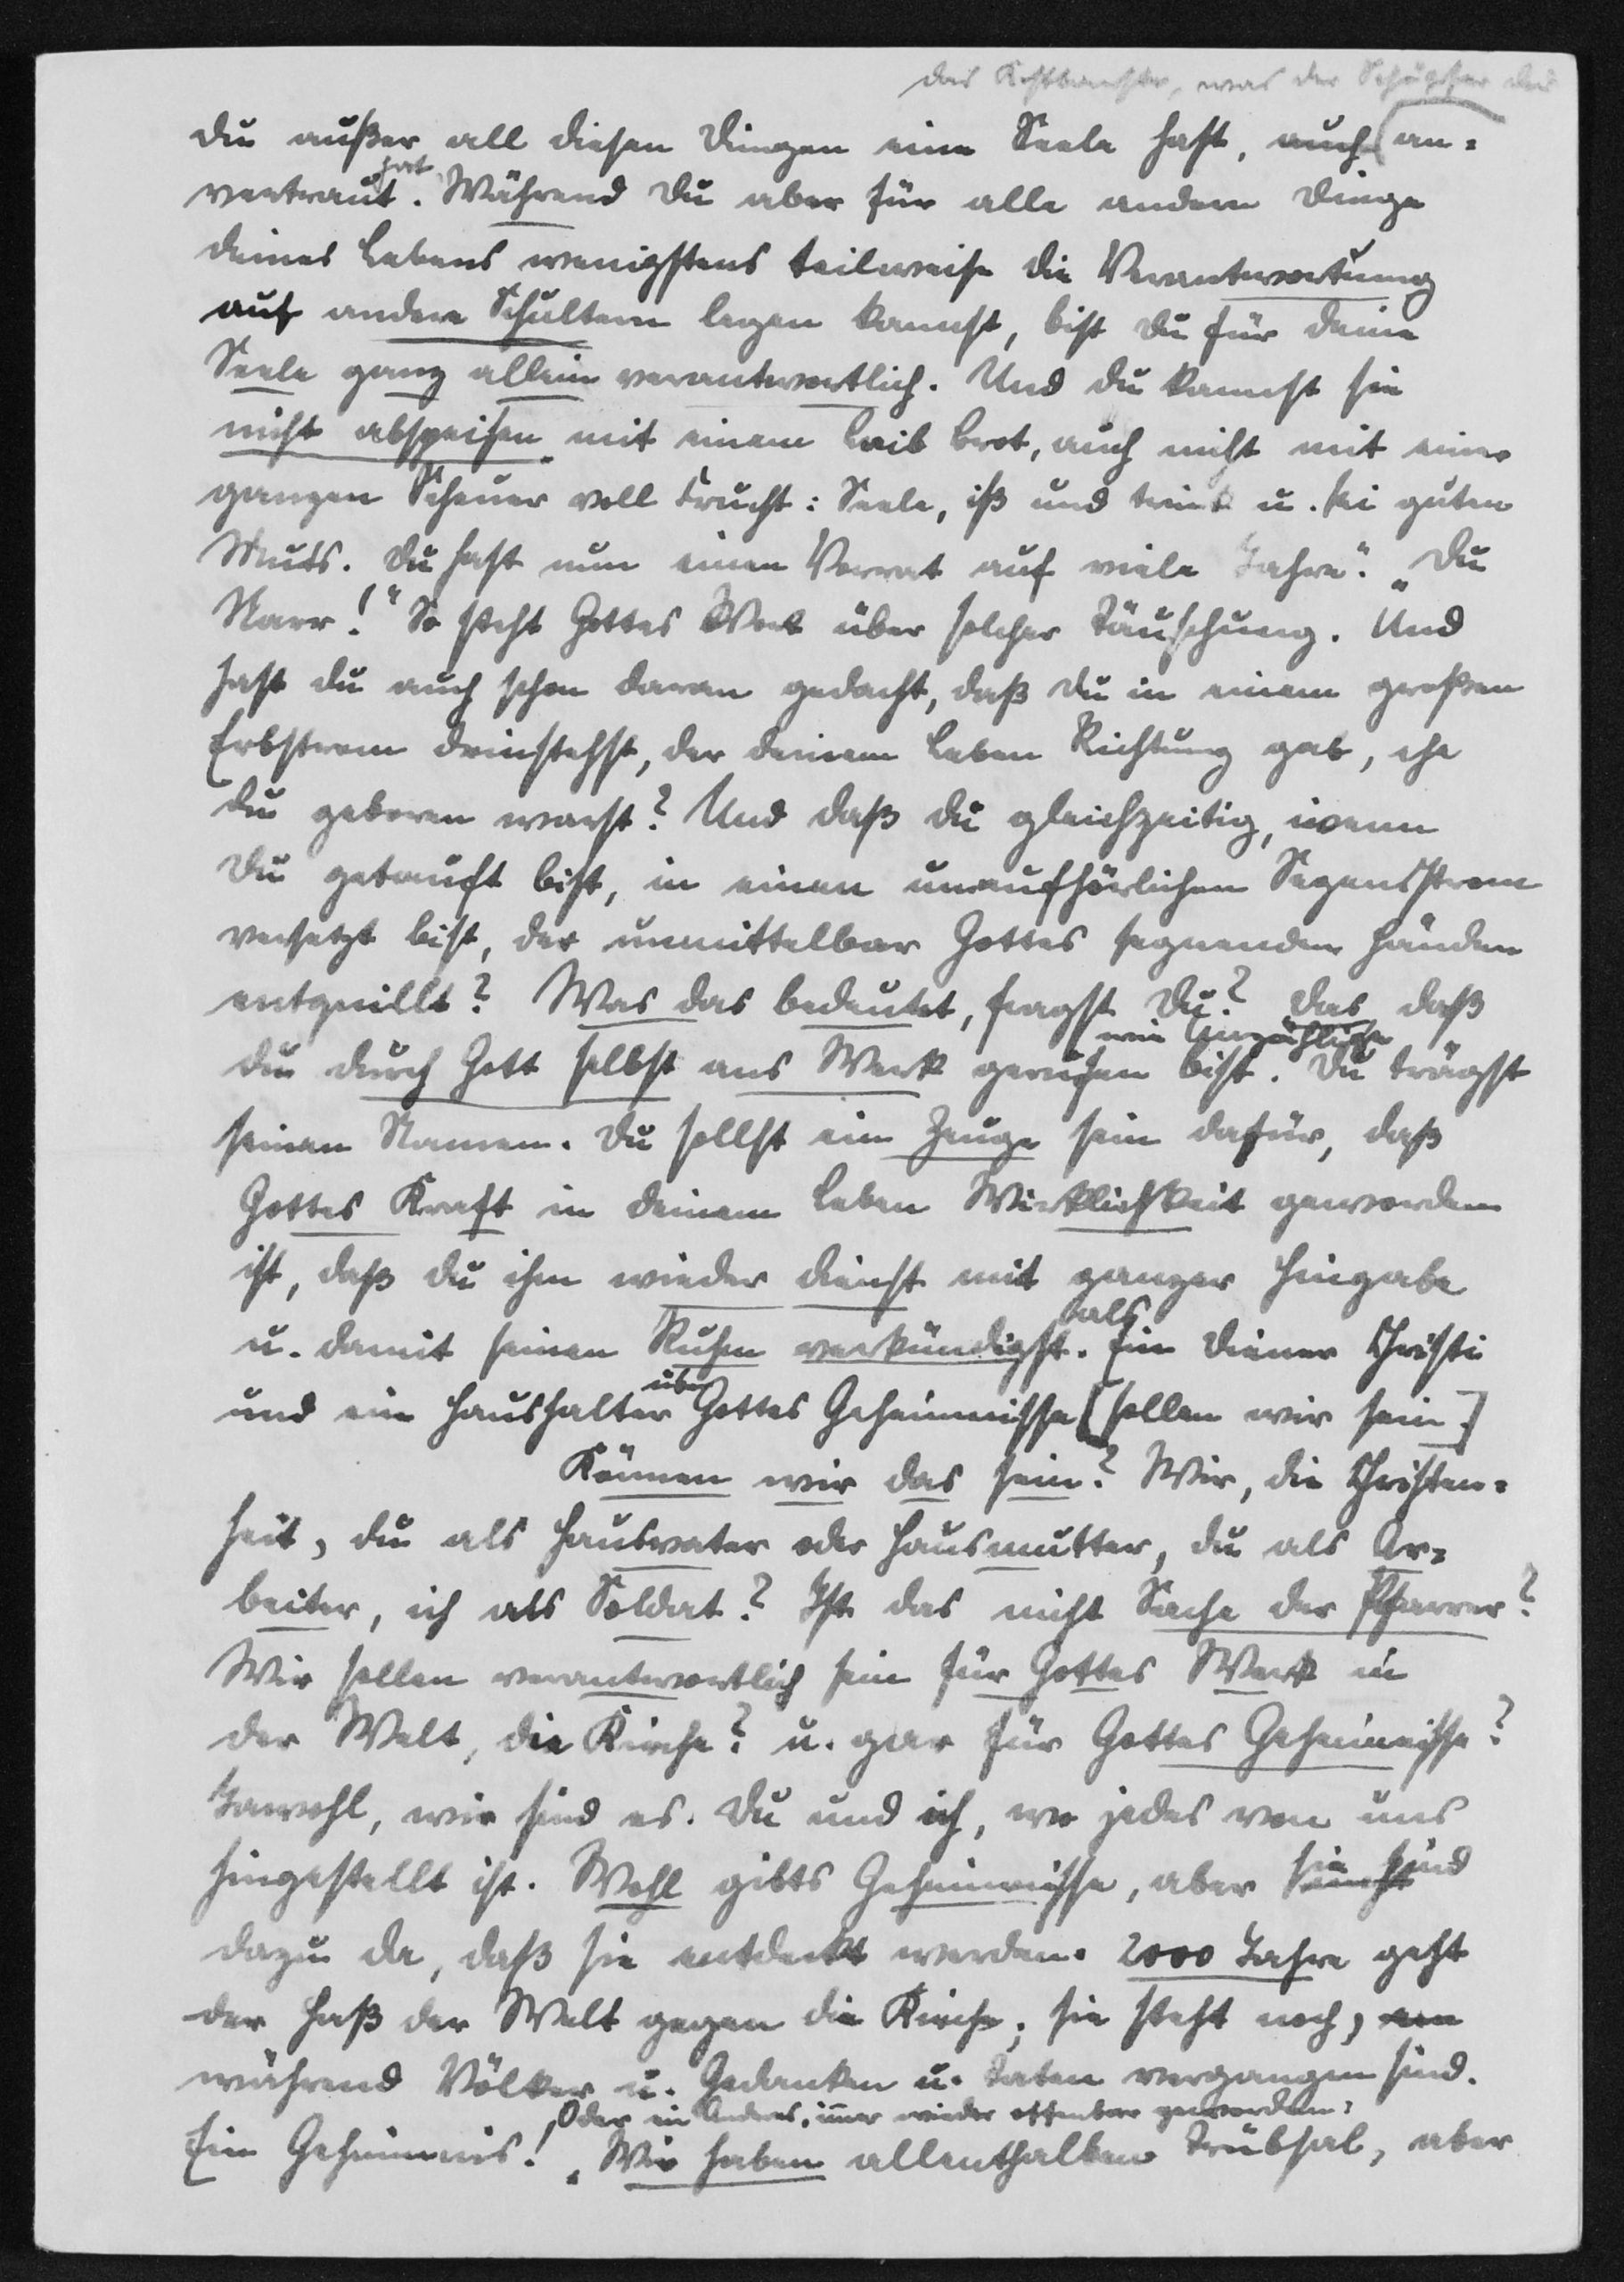 das Kostbarste, was der Schöpfer dir
du außer all diesen Dingen eine Seele hast, auch an-
hat
vertraut. Während du aber für alle andern Dinge
deines Lebens wenigstens teilweise die Verantwortung
auf andere Schultern legen kannst, bist du für deine
Seele ganz allein verantwortlich. Und du kannst sie
nicht abspeisen mit einem Laib Brot, auch nicht mit einer
ganzen Scheuer voll Frucht: Seele, iß und trink u. sei guten
Muts. Du hast nun einen Vorrat auf viele Jahre". „Du
Narr!" So steht Gottes Wort über solcher Täuschung. Und
hast du auch schon daran gedacht, daß du in einem großen
Erbstrom drinstehst, der deinem Leben Richtung gab, ehe
du geboren warst? Und daß du gleichzeitig, wenn
du getauft bist, in einen unaufhörlichen Segensstrom
versetzt bist, der unmittelbar Gottes segnenden Händen
entquillt? Was das bedeutet, fragst du? Das, daß
wie Unzählige
du durch Gott selbst ans Werk gerufen bist. Du trägst
seinen Namen. Du sollst ein Zeuge sein dafür, daß
Gottes Kraft in deinem Leben Wirklichkeit geworden
ist, daß du ihm wieder dienst mit ganzer Hingabe
als
u. damit seinen Ruhm verkündigst. Ein Diener Christi
über
und ein Haushalter Gottes Geheimnisse [sollen wir sein.]
Können wir das sein? Wir, die Christen-
heit, du als Hausvater oder Hausmutter, du als Ar-
beiter, ich als Soldat? Ist das nicht Sache der Pfarrer?
Wir sollen verantwortlich sein für Gottes Werk in
der Welt, die Kirche? u. gar für Gottes Geheimnisse?
Jawohl, wir sind es. Du und ich, wo jedes von uns
hingestellt ist. Wohl gibts Geheimnisse, aber sie sind
dazu da, daß sie entdeckt werden. 2000 Jahre geht
der Haß der Welt gegen die Kirche; sie steht noch,
während Völker u. Gedanken u. Taten vergangen sind.
Oder ein Anderes, immer wieder offenbar geworden:
Ein Geheimnis! „Wir haben allenthalben Trübsal, aber